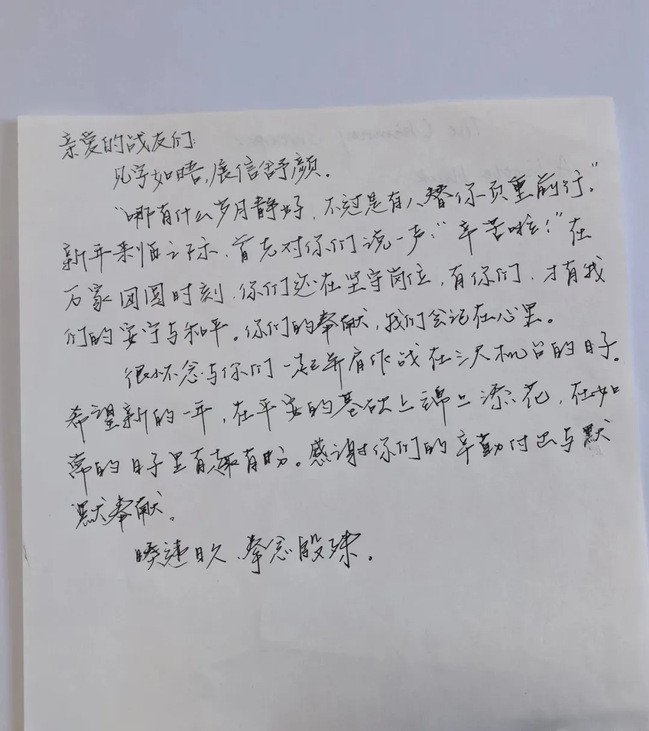 亲爱的战友们:
见字如晤,展信舒颜。
“哪有什么岁月静好,不过是有人替你负重前行。”
新年来临之际,首先对你们说一声:“辛苦啦!”在
万家团圆时刻,你们还在坚守岗位,有你们,才有我
们的安宁与和平。你们的奉献,我们会记在心里。
很怀念与你们一起并肩作战在三尺机台的日子。
希望新的一年,在平安的基础上锦上添花,在如
常的日子里有趣有盼。感谢你们的辛勤付出与默
默奉献。
暌违日久,拳念殷殊。